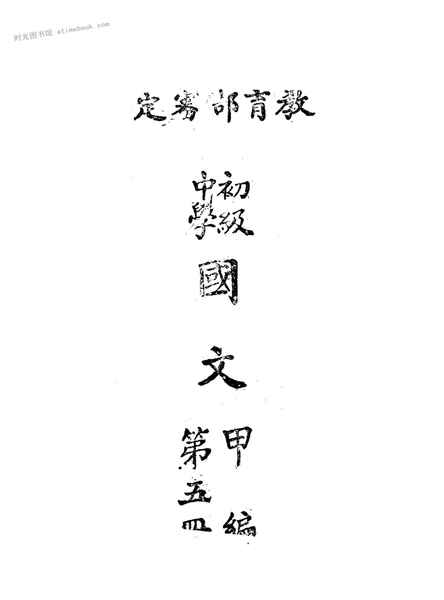 时光图书馆 atimebook.com
教育部審定
初級
中學
國文
甲編
第五冊